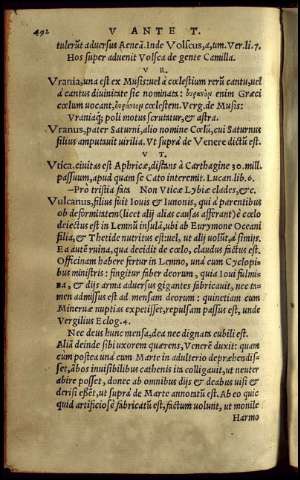 492 V ANTE T.
tulerūt aduersus Aeneā. Inde Volscus, a, um. Ver. li. 7.
Hos super aduenit Volsca de gente Camilla.
V R.
Vrania, una est ex Musis: uel à cœlestium rerū cantu, uel
à cantus diuinitate sic nominata: enim Græci
cœlum uocant, cœlestem. Verg. de Musis:
Vraniaq; poli motus scrutatur, & astra.
Vranus, pater Saturni, alio nomine Cœlū, cui Saturnus
filius amputauit uirilia. Vt suprà de Venere dictū est.
V T.
Vtica, ciuitas est Aphricæ, distās à Carthagine 30. mill.
passuum, apud quam se Cato interemit. Lucan. lib. 6.
– Pro tristia fata Non Vticæ Lybiæ clades, &c.
Vulcanus, filius fuit Iouis & Iunonis, qui à parentibus
ob deformitatem (licet alij alias causas afferāt) è cœlo
deiectus est in Lemnū insulā, ubi ab Eurymone Oceani
filia, & Thetide nutritus est: uel, ut alij uolūt, à simijs.
Ea autē ruina, qua decidit de cœlo, claudus factus est.
Officinam habere fertur in Lemno, und cum Cyclopi-
bus ministris: fingitur faber deorum, quia Ioui fulmi-
na, & dijs arma aduersus gigantes fabricauit, nec ta-
men admissus est ad mensam deorum: quinetiam cum
Mineruæ nuptias expetijset, repulsam passus est, unde
Vergilius Eclog. 4.
Nec deus hunc mensa, dea nec dignata cubili est.
Aliā deinde sibi uxorem quærens, Venerē duxit: quam
cum postea und cum Marte in adulterio depræhendis-
set, ābos inuisibilibus cathenis ita colligauit, ut neuter
abire posset, donec ab omnibus dijs & deabus uisi &
derisi essēt, ut suprà de Marte annotatū est. Ab eo quic
quid artificiosè fabricatū est, factum uolunt, ut monile
Harmo